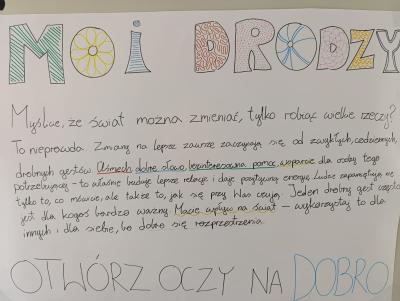 MOI DRODZY
Myślicie, że świat można zmieniać, tylko robiąc wielkie rzeczy?
To nieprawda. Zmiany na lepsze zawsze zaczynają się od zwykłych, codziennych,
drobnych gestów. Uśmiech, dobre słowo, bezinteresowna pomoc, wsparcie dla osoby tego
potrzebującej – to właśnie buduje lepsze relacje i daje pozytywną energię. Ludzie zapamiętują nie
tylko to, co mówicie, ale także to, jak się przy Was czują. Jeden drobny gest często
jest dla kogoś bardzo ważny. Macie wpływ na świat – wykorzystaj to dla
innych i dla siebie, bo dobro się rozprzestrzenia.
OTWÓRZ OCZY NA DOBRO